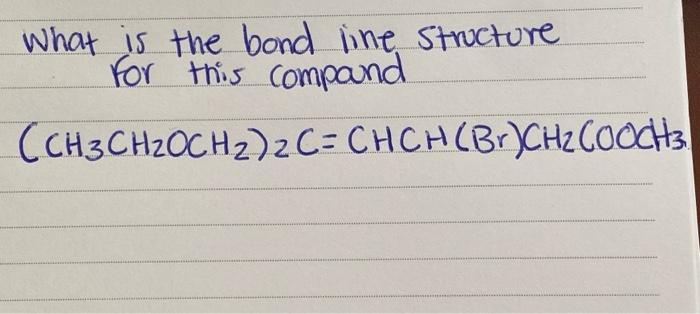 What is the bond line structure
for this compand
(CH3CH2OCH2)2C=CHCH(Br)CH2COOCH3.